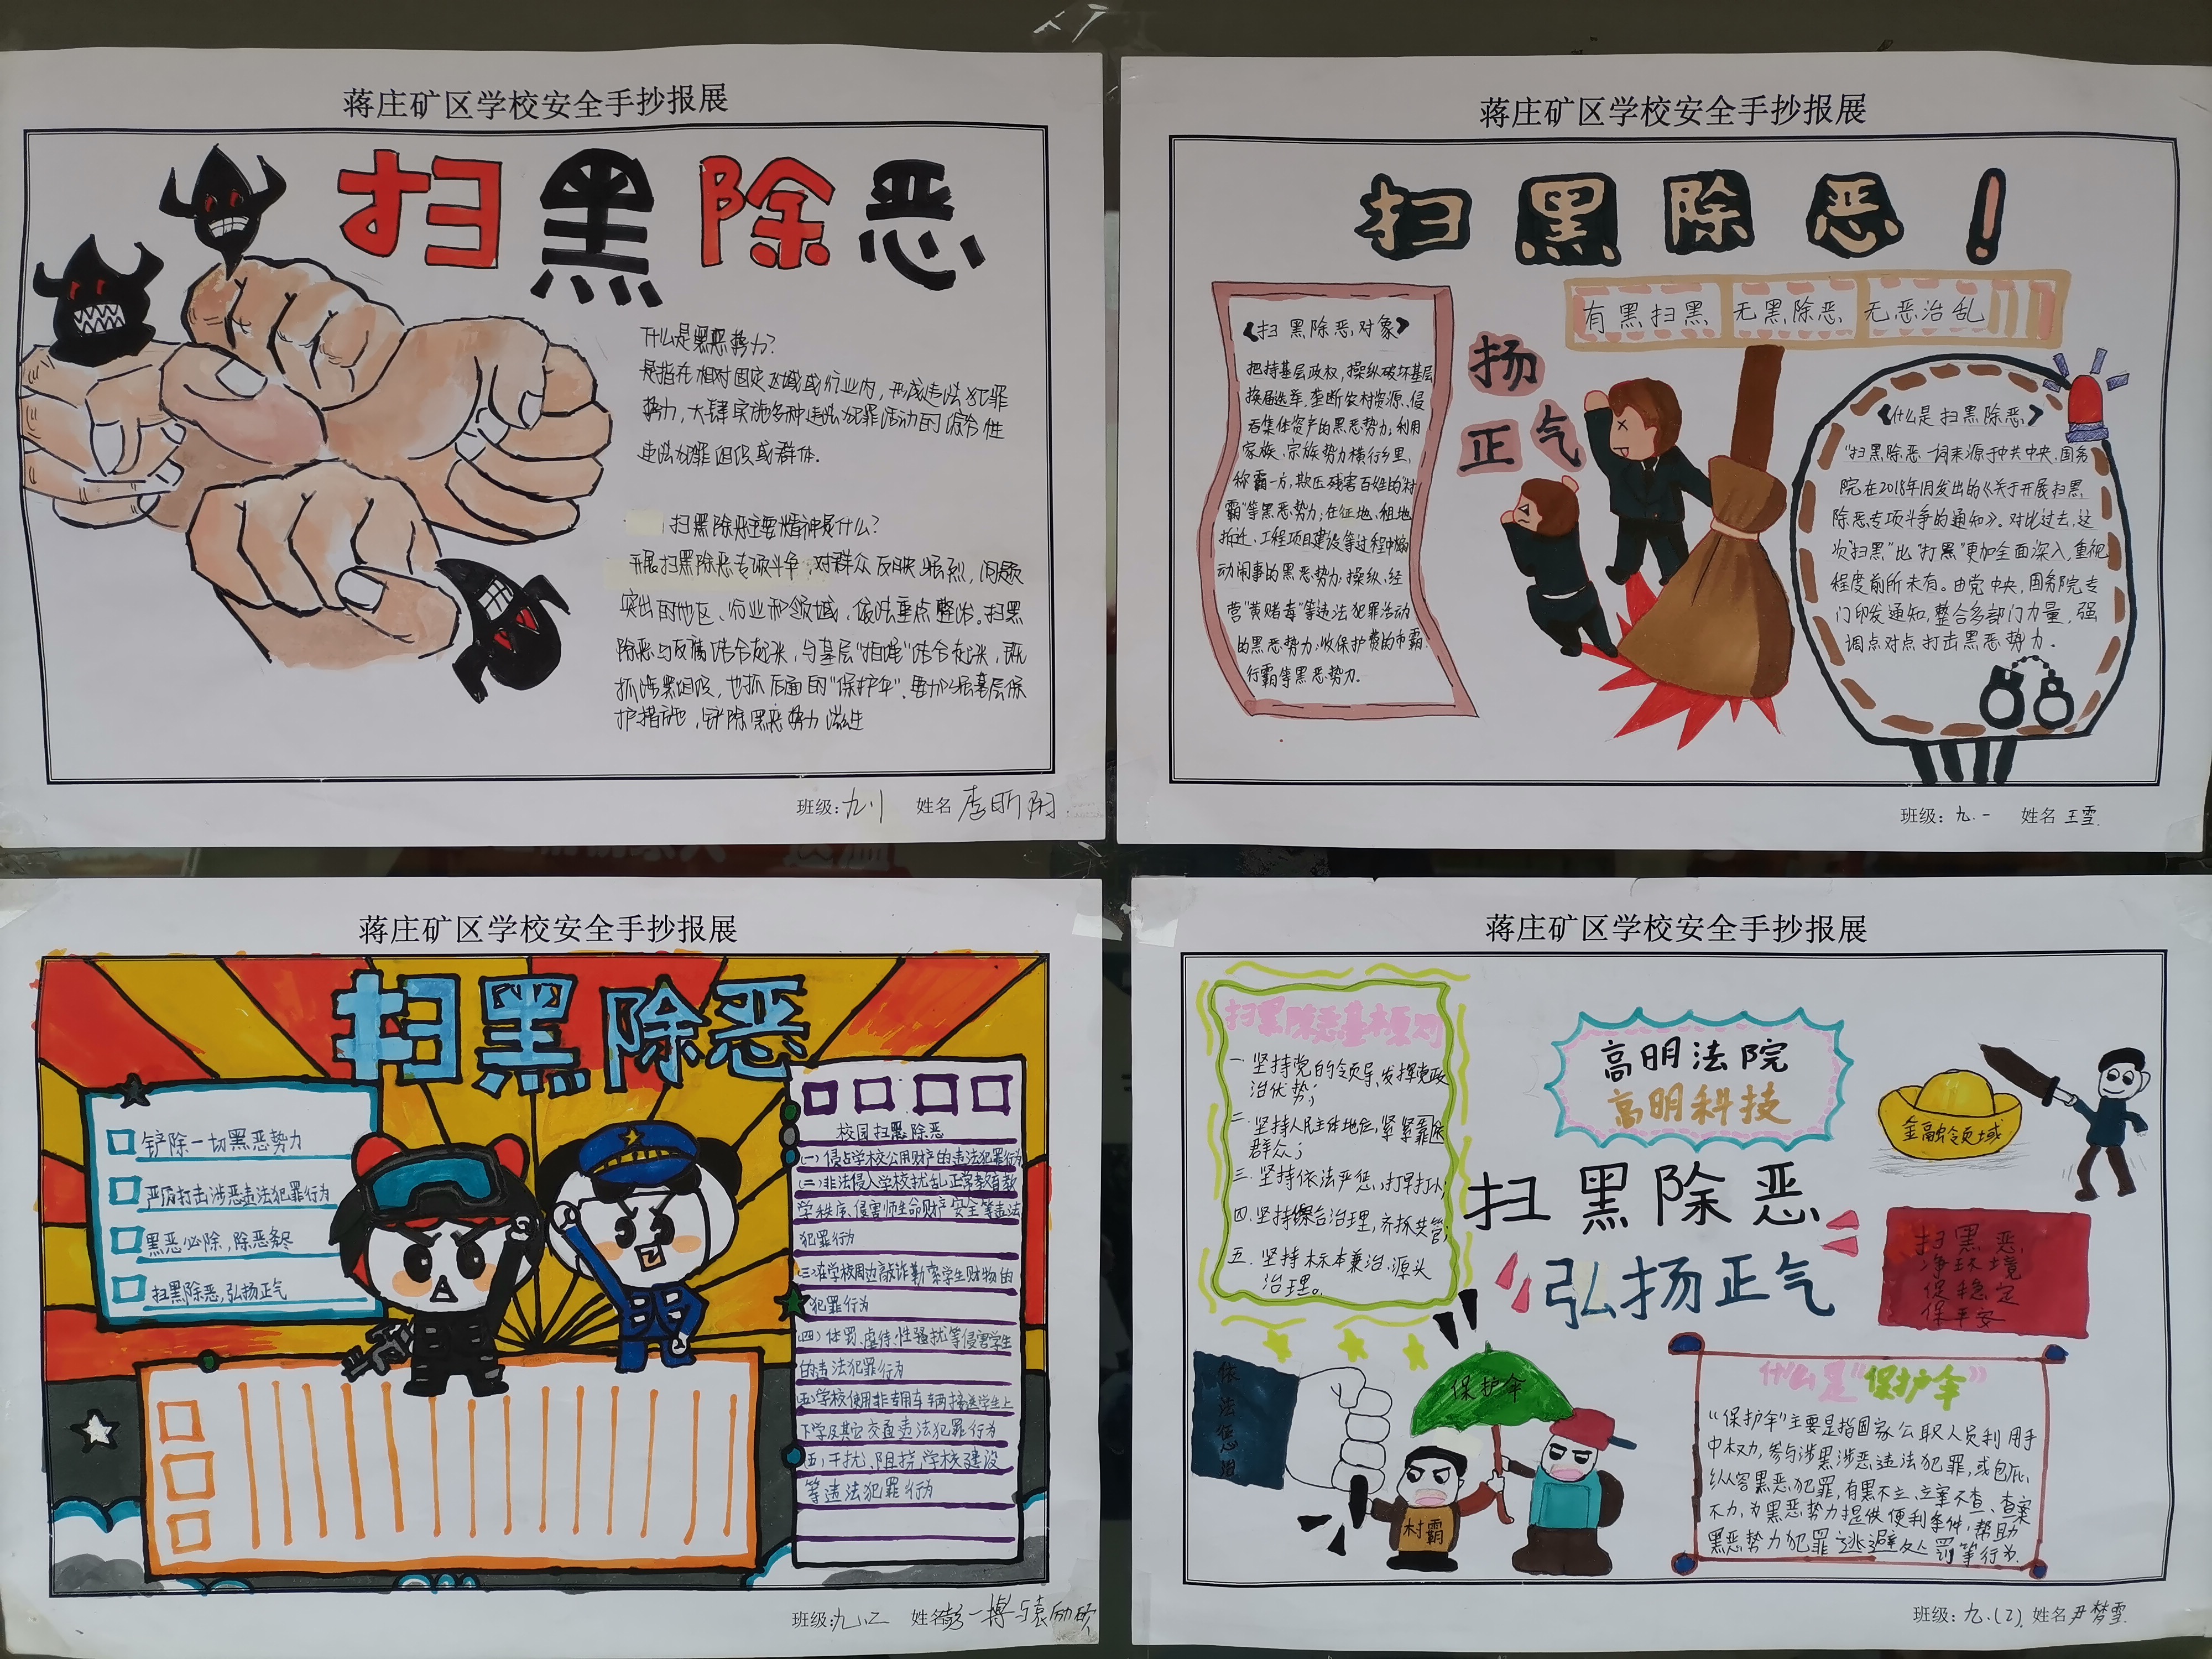 蒋庄矿区学校安全手抄报展
扫黑除恶
什么是黑恶势力?
是指在相对固定区域或行业内,形成违法犯罪
势力,大肆实施多种违法犯罪活动的综合性
违法犯罪组织或群体.
扫黑除恶主要精神是什么?
开展扫黑除恶专项斗争,对群众反映强烈,问题
突出的地区、行业和领域,依法重点整治。扫黑
除恶与反腐结合起来,与基层"拍蝇"结合起来,既
抓涉黑组织,也抓后面的"保护伞".要加强基层保
护措施,铲除黑恶势力滋生
班级:九.1 姓名
蒋庄矿区学校安全手抄报展
扫黑除恶!
有黑扫黑 无黑除恶 无恶治乱
扬
正气
《扫黑除恶对象》
把持基层政权,操纵破坏基层
换届选举,垄断农村资源、侵
吞集体资产的黑恶势力;利用
家族、宗族势力横行乡里,
称霸一方,欺压残害百姓的"村
霸"等黑恶势力;在征地、租地
拆迁、工程项目建设等过程中煽
动闹事的黑恶势力;操纵、经
营"黄赌毒"等违法犯罪活动
的黑恶势力;收保护费的市霸
行霸等黑恶势力.
《什么是扫黑除恶》
"扫黑除恶一词来源于中共中央、国务
院在2018年1月发出的《关于开展扫黑
除恶专项斗争的通知》。对比过去,这
次"扫黑"比"打黑"更加全面深入,重视
程度前所未有。由党中央、国务院专
门印发通知,整合多部门力量,强
调点对点打击黑恶势力.
班级:九.一 姓名 王雪.
蒋庄矿区学校安全手抄报展
扫黑除恶
铲除一切黑恶势力
严厉打击涉恶违法犯罪行为
黑恶必除,除恶务尽
扫黑除恶,弘扬正气
校园扫黑除恶
(一)侵占学校公用财产的违法犯罪行为
(二)非法侵入学校扰乱正常教育教
学秩序、侵害师生命财产安全等违法
犯罪行为
(三)在学校周边敲诈勒索学生财物的
犯罪行为
(四)体罚、虐待、性骚扰等侵害学生
的违法犯罪行为
(五)学校使用非专用车辆接送学生上
下学及其它交通违法犯罪行为
(五)干扰、阻挠学校建设
等违法犯罪行为
班级:九.二 姓名 彭一搏与袁励硕
蒋庄矿区学校安全手抄报展
扫黑除恶基本原则
一.坚持党的领导,发挥党政
治优势;
二.坚持人民主体地位,紧紧靠
群众;
三.坚持依法严惩,打早打小;
四.坚持综合治理,齐抓共管;
五.坚持标本兼治,源头
治理。
高明法院
高明科技
金融领域
扫黑除恶
弘扬正气
扫黑恶
净环境
促稳定
保平安
依法惩治
保护伞
村霸
什么是"保护伞"
"保护伞"主要是指国家公职人员利用手
中权力,参与涉黑涉恶违法犯罪,或包庇、
纵容黑恶犯罪,有黑不立、立案不查、查案
不力,为黑恶势力提供便利条件,帮助
黑恶势力犯罪逃避处罚等行为.
班级:九.(2). 姓名 尹梦雪.